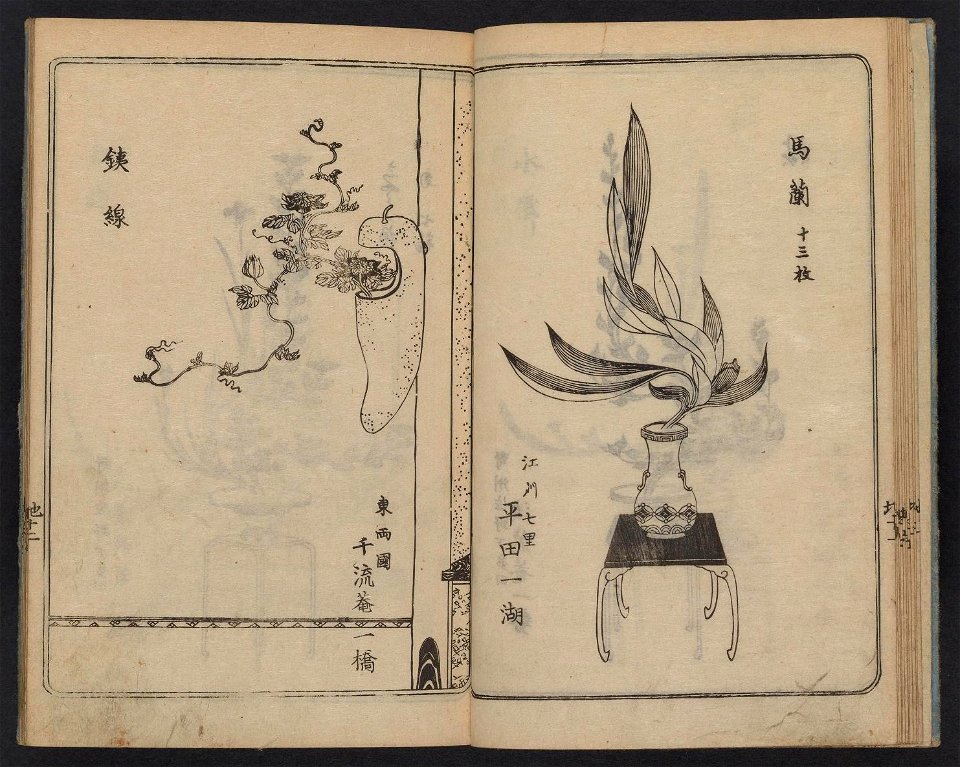 馬蘭 十三枚
江州七里
平田一湖
銕線
東両國
千流菴一橋
地十二